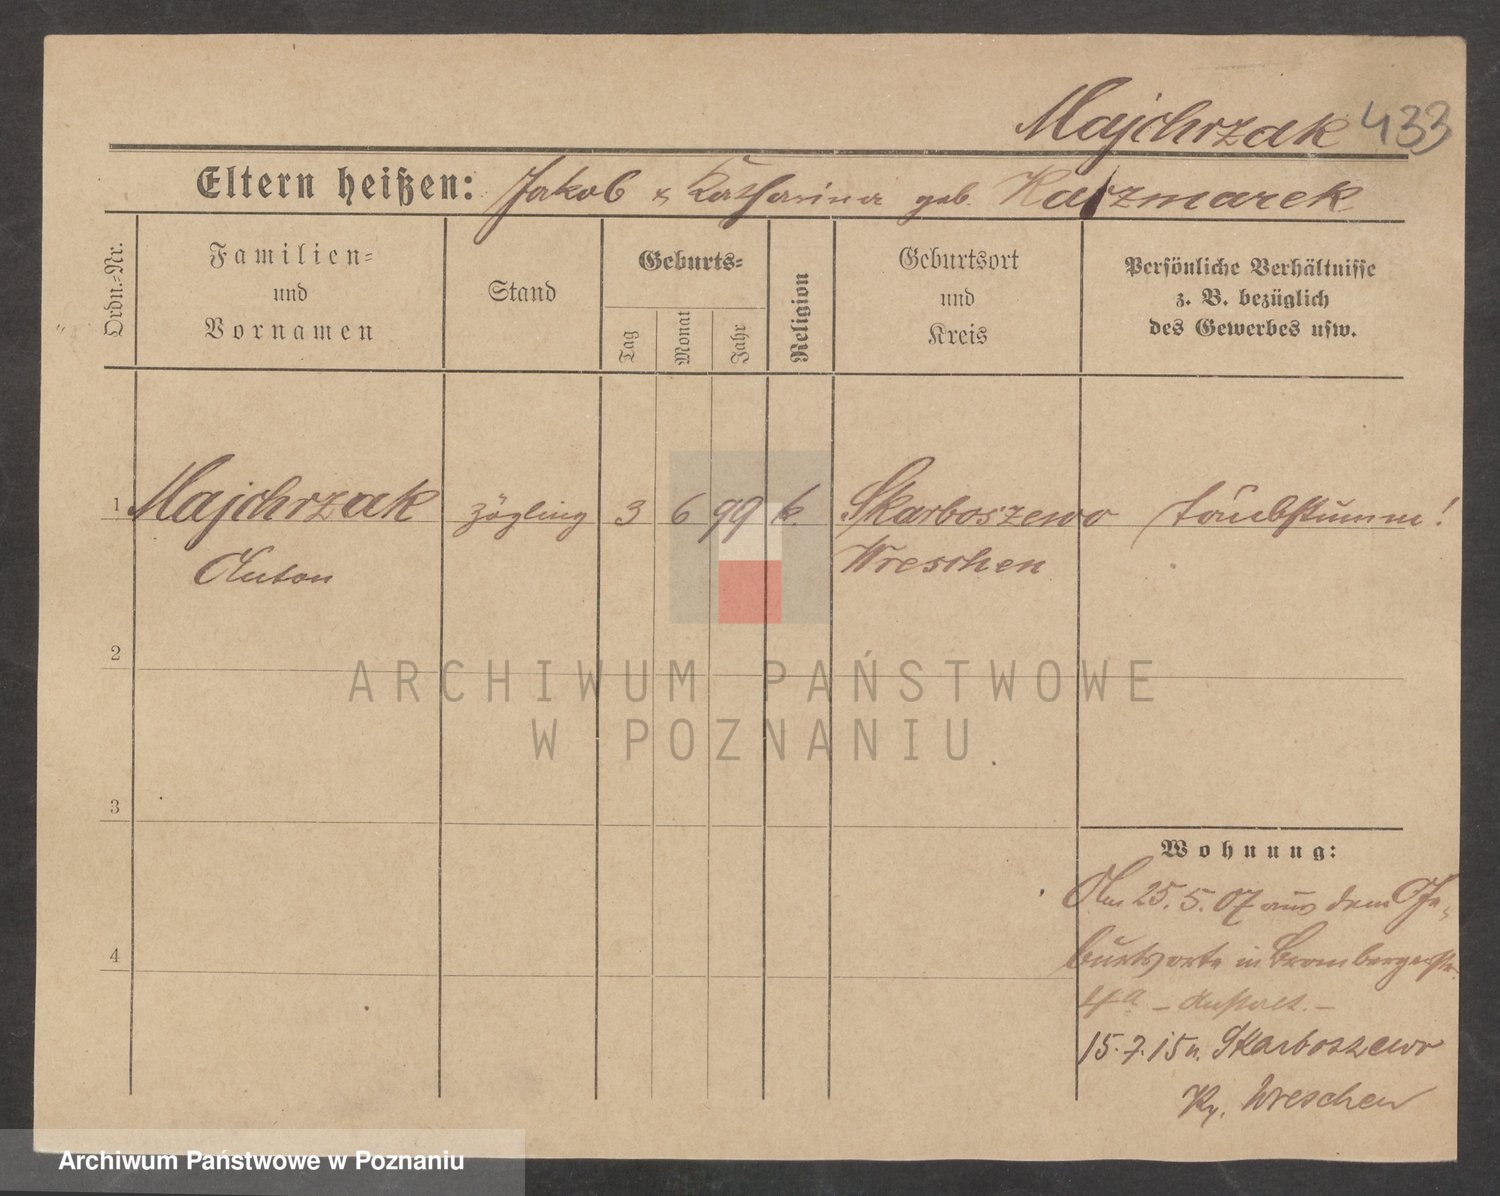 Majchrzak 433
Eltern heißen: Jakob & Katharina geb. Kaczmarek
Ordn.-Nr.
Familien-
und
Vornamen
Stand
Geburts-
Tag
Monat
Jahr
Religion
Geburtsort
und
Kreis
Persönliche Verhältnisse
z. B. bezüglich
des Gewerbes usw.
1 Majchrzak Zögling 3 6 99 k. Skarboszewo taubstumm!
Anton Wreschen
2
ARCHIWUM PAŃSTWOWE
W POZNANIU
3
Wohnung:
Am 25.5.07 aus dem Ge-
burtsorte in Brombergerstr.
4
4a - Anstalt. -
15.7.15 n. Skarboszewo
Kr. Wreschen
Archiwum Państwowe w Poznaniu